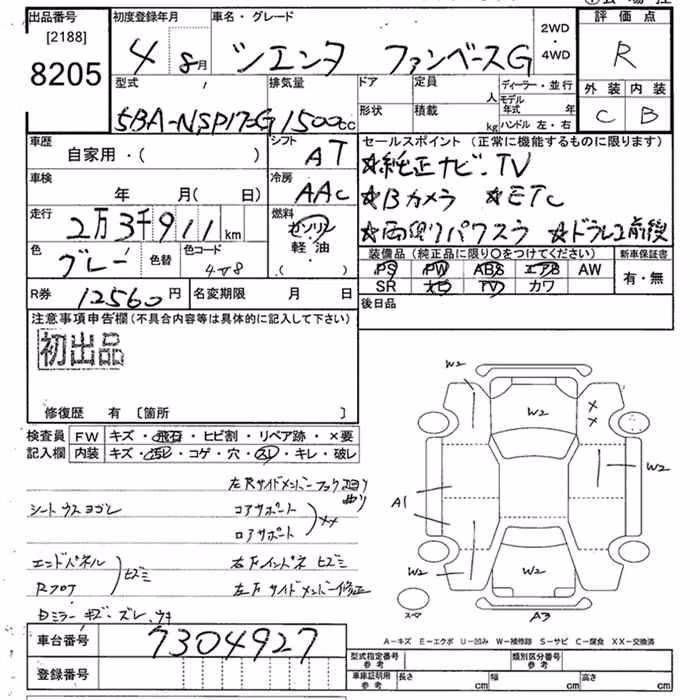 出品番号 初度登録年月 車名・グレード 2WD 4WD 評価点
[2188]
8205 4 8月 シエンタ ファンベースG R
型式 排気量 ドア 定員 人 ディーラー・並行 外装 内装
5BA-NSP170G 1500cc 形状 積載 kg モデル年式 年 ハンドル 左・右 C B
車歴 自家用・( ) シフト AT セールスポイント(正常に機能するものに限ります)
☆純正ナビ・TV
車検 年 月(日) 冷房 AAC ☆Bカメラ ☆ETC
走行 2万3千911km 燃料 ガソリン 軽・油 ・( ) ☆両側パワスラ ☆ドラレコ前後
色 グレー 色替 色コード 装備品(純正品に限り○をつけてください) 新車保証書
PS PW ABS エアB AW 有・無
SR ナビ TV カワ
R券 12560円 名変期限 月 日 後日品
注意事項申告欄(不具合内容等は具体的に記入して下さい)
初出品
修復歴 有 〔箇所 〕
検査員 FW キズ・飛石・ヒビ割・リペア跡・×要
記入欄 内装 キズ・汚レ・コゲ・穴・スレ・キレ・破レ
W2
W2
W2
A1
W2
W2
W2
A3
左Rサイドメンバーフック 曲り
シートウスヨゴレ コアサポート ××
ロアサポート
エンドパネル ヒズミ 右Fインパネ ヒズミ
Rフロア 左Fサイドメンバー修正
Dミラーキズ・ズレ・ウキ
A-キズ E-エクボ U-凹み W-補修跡 S-サビ C-腐食 XX-交換済
車台番号 7304927
型式指定番号 参考 類別区分番号 参考
登録番号 車庫証明用 参考 長さ cm 幅 cm 高さ cm